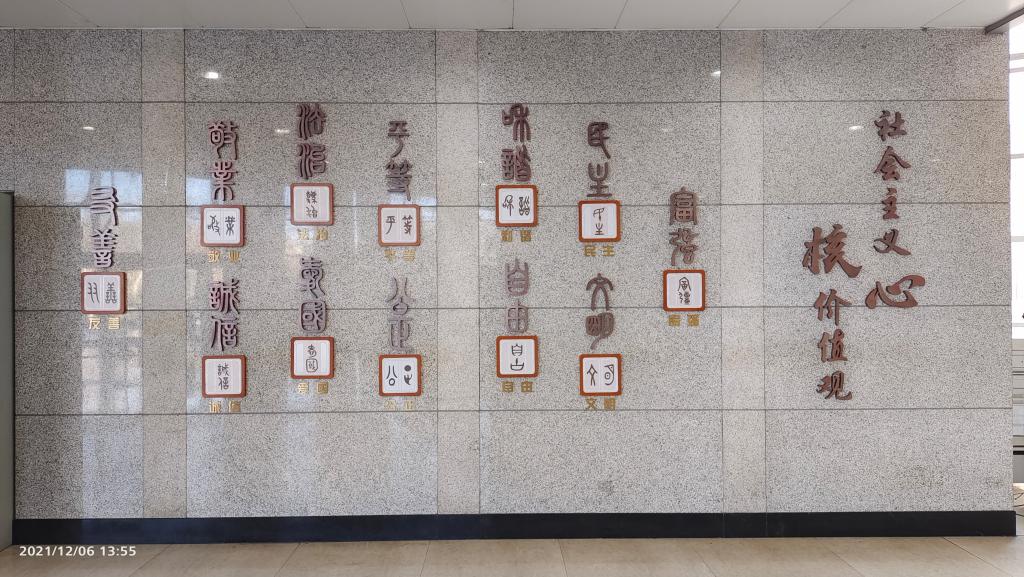 社会主义
核心价值观
富强
富強
富强
民主
民主
民主
文明
文明
文明
和諧
和諧
和谐
自由
自由
自由
平等
平等
平等
公正
公正
公正
法治
法治
法治
愛國
愛國
爱国
敬業
敬業
敬业
誠信
誠信
诚信
友善
友善
友善
2021/12/06 13:55